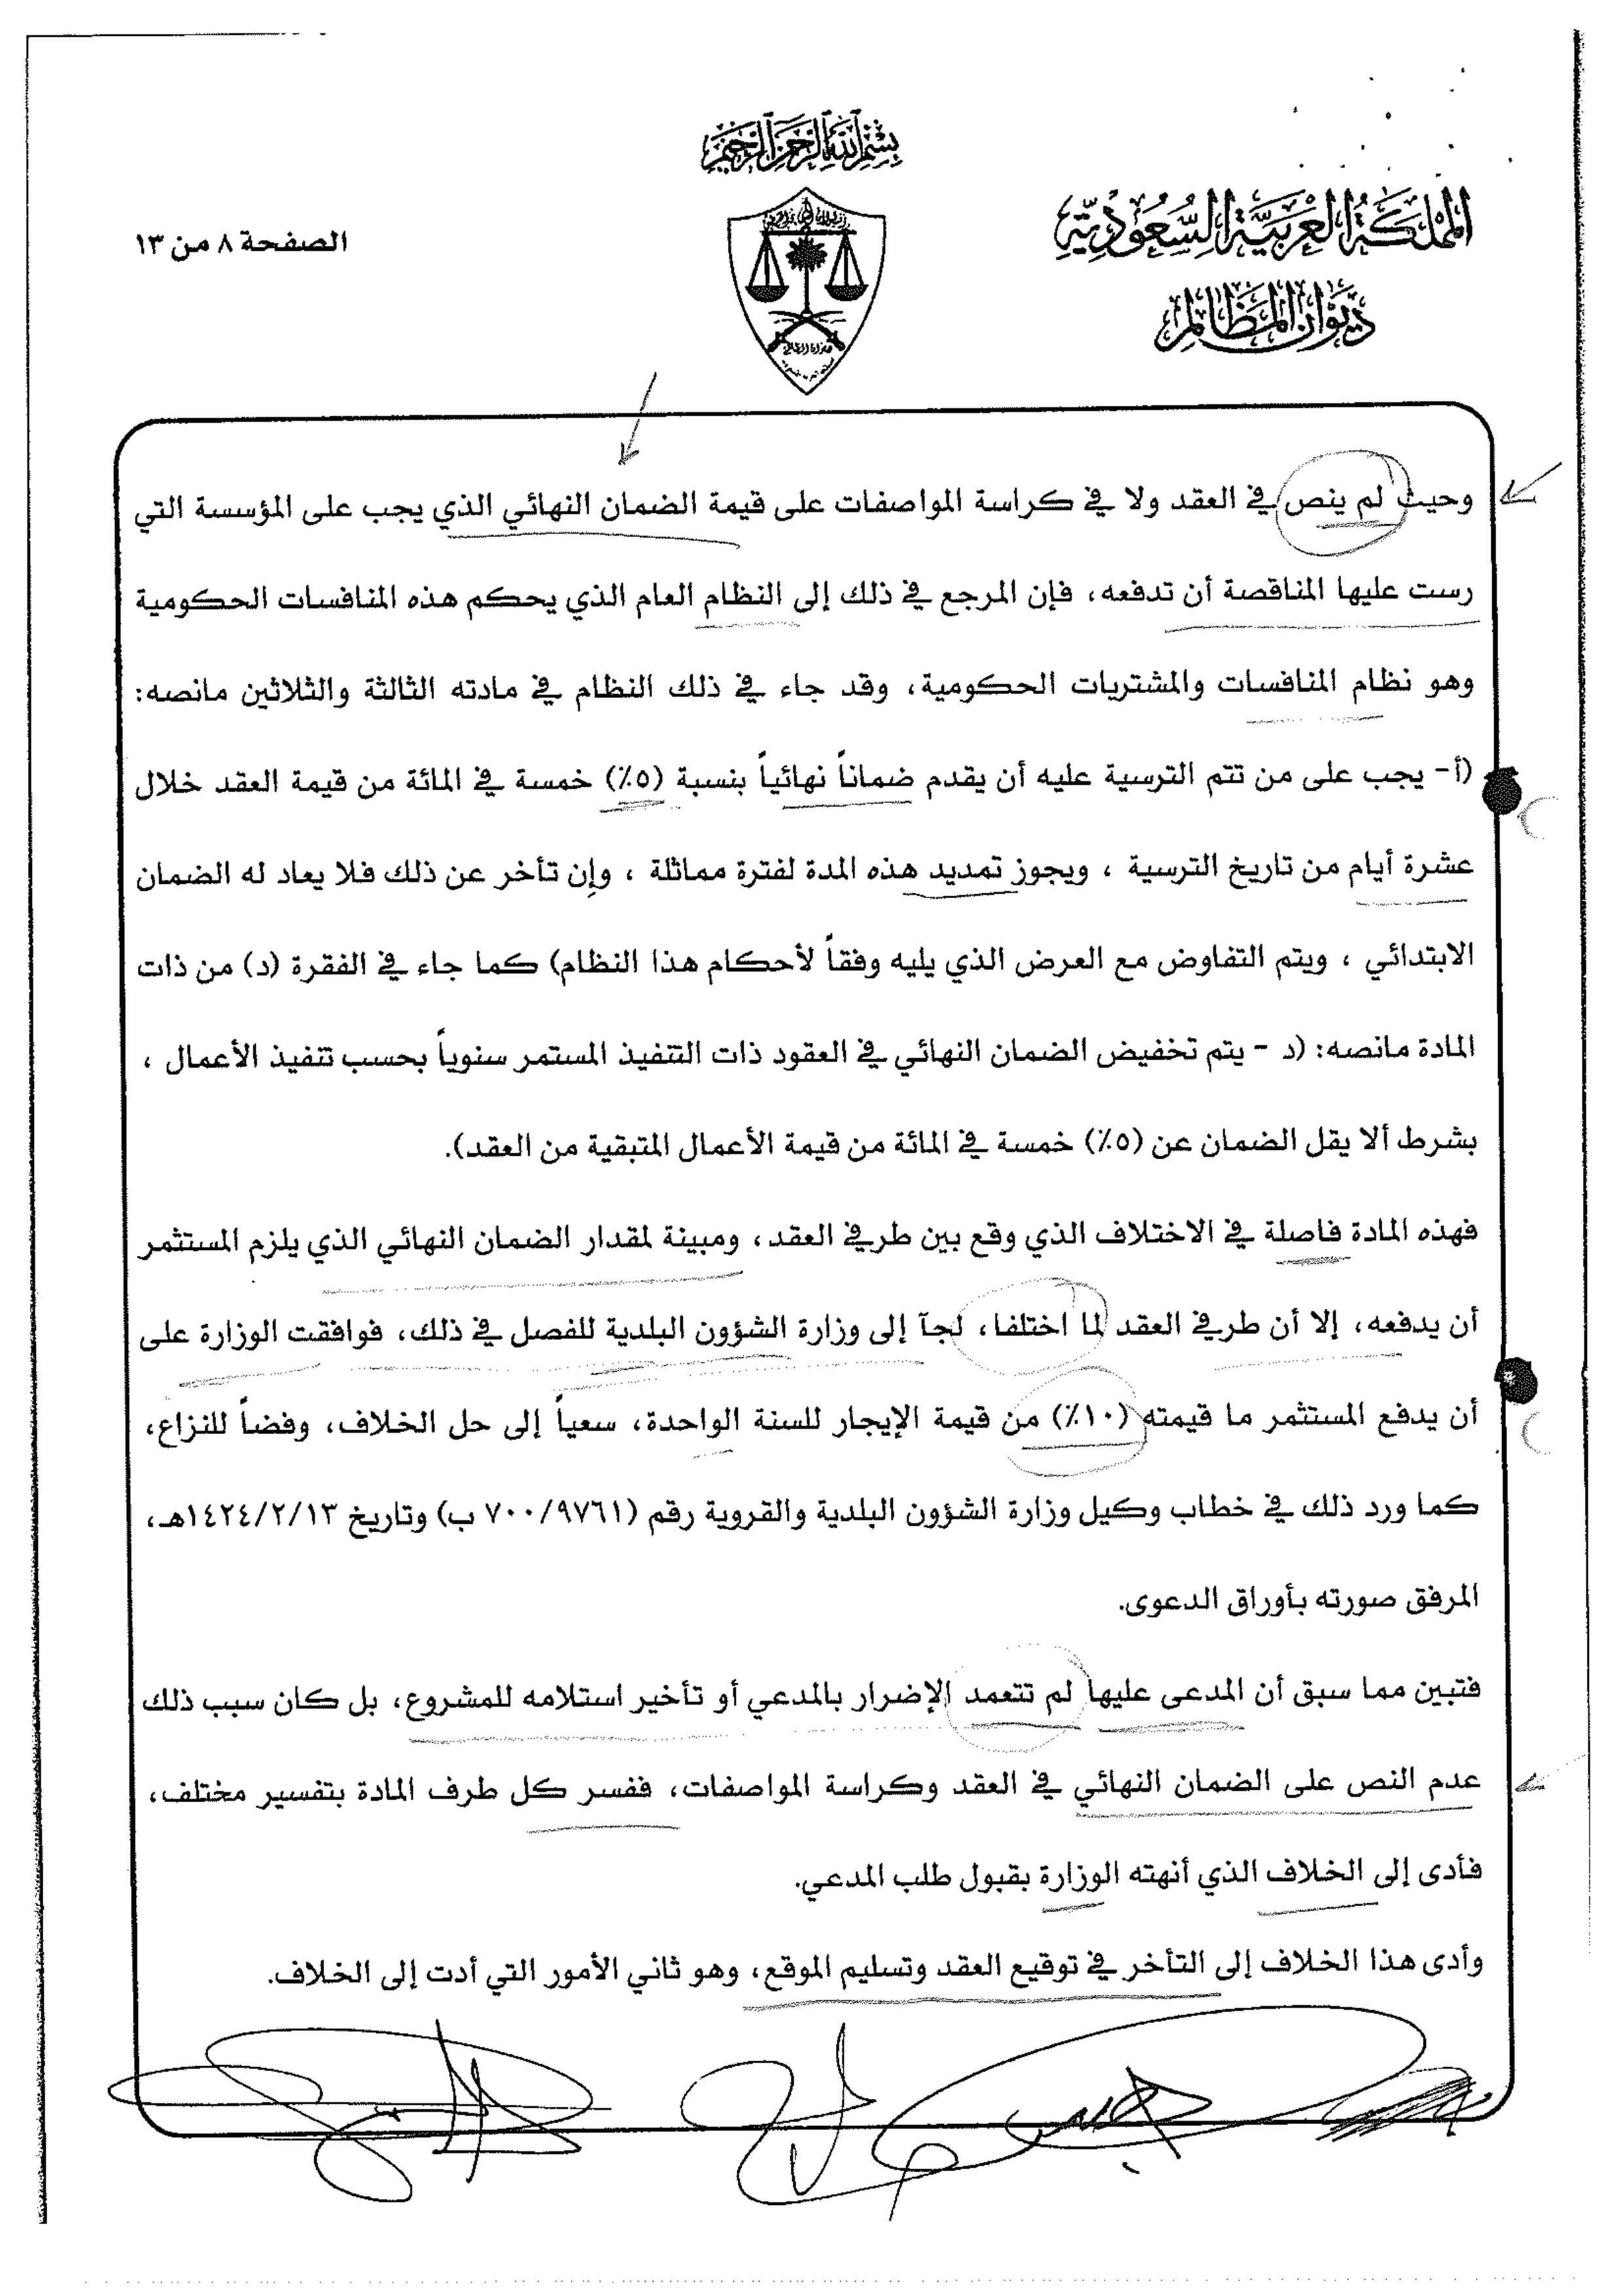 بسم الله الرحمن الرحيم
المملكة العربية السعودية
ديوان المظالم
الصفحة ٨ من ١٣
وحيث لم ينص في العقد ولا في كراسة المواصفات على قيمة الضمان النهائي الذي يجب على المؤسسة التي
رست عليها المناقصة أن تدفعه، فإن المرجع في ذلك إلى النظام العام الذي يحكم هذه المنافسات الحكومية
وهو نظام المنافسات والمشتريات الحكومية، وقد جاء في ذلك النظام في مادته الثالثة والثلاثين مانصه:
(أ- يجب على من تتم الترسية عليه أن يقدم ضماناً نهائياً بنسبة (٥٪) خمسة في المائة من قيمة العقد خلال
عشرة أيام من تاريخ الترسية ، ويجوز تمديد هذه المدة لفترة مماثلة ، وإن تأخر عن ذلك فلا يعاد له الضمان
الابتدائي ، ويتم التفاوض مع العرض الذي يليه وفقاً لأحكام هذا النظام) كما جاء في الفقرة (د) من ذات
المادة مانصه: (د - يتم تخفيض الضمان النهائي في العقود ذات التنفيذ المستمر سنوياً بحسب تنفيذ الأعمال ،
بشرط ألا يقل الضمان عن (٥٪) خمسة في المائة من قيمة الأعمال المتبقية من العقد).
فهذه المادة فاصلة في الاختلاف الذي وقع بين طرفي العقد، ومبينة لمقدار الضمان النهائي الذي يلزم المستثمر
أن يدفعه، إلا أن طرفي العقد لما اختلفا، لجآ إلى وزارة الشؤون البلدية للفصل في ذلك، فوافقت الوزارة على
أن يدفع المستثمر ما قيمته (١٠٪) من قيمة الإيجار للسنة الواحدة، سعياً إلى حل الخلاف، وفضاً للنزاع،
كما ورد ذلك في خطاب وكيل وزارة الشؤون البلدية والقروية رقم (٧٠٠/٩٧٦١ ب) وتاريخ ١٤٢٤/٢/١٣هـ،
المرفق صورته بأوراق الدعوى.
فتبين مما سبق أن المدعى عليها لم تتعمد الإضرار بالمدعي أو تأخير استلامه للمشروع، بل كان سبب ذلك
عدم النص على الضمان النهائي في العقد وكراسة المواصفات، ففسر كل طرف المادة بتفسير مختلف،
فأدى إلى الخلاف الذي أنهته الوزارة بقبول طلب المدعي.
وأدى هذا الخلاف إلى التأخر في توقيع العقد وتسليم الموقع، وهو ثاني الأمور التي أدت إلى الخلاف.